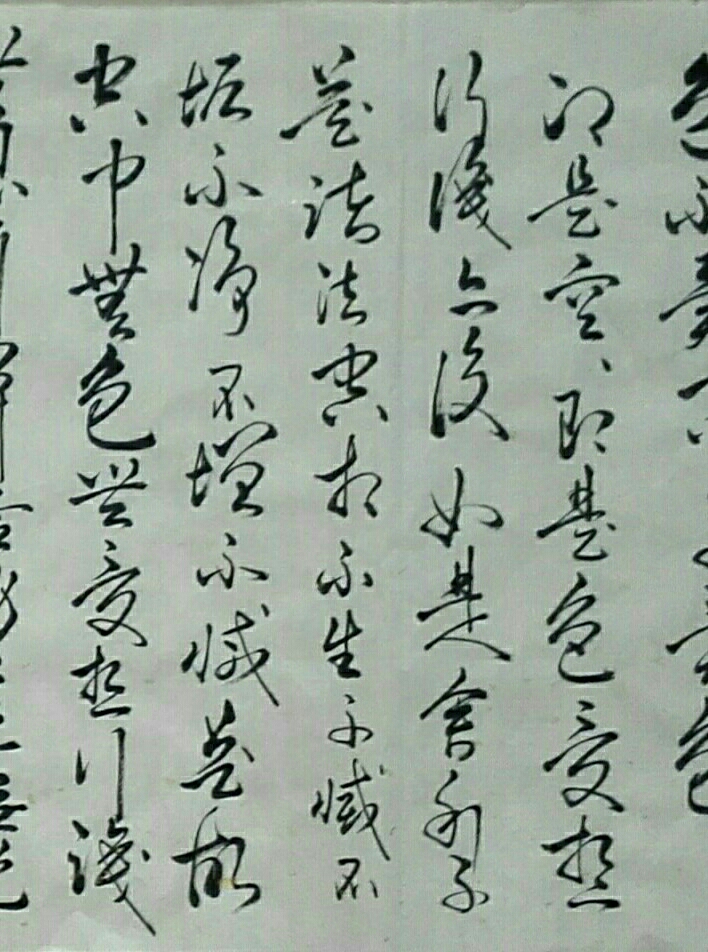 色不異空、不異色
即是空、即是色受想
行識亦復如是舍利子
是諸法空相不生不滅不
垢不淨不增不減是故
空中無色無受想行識